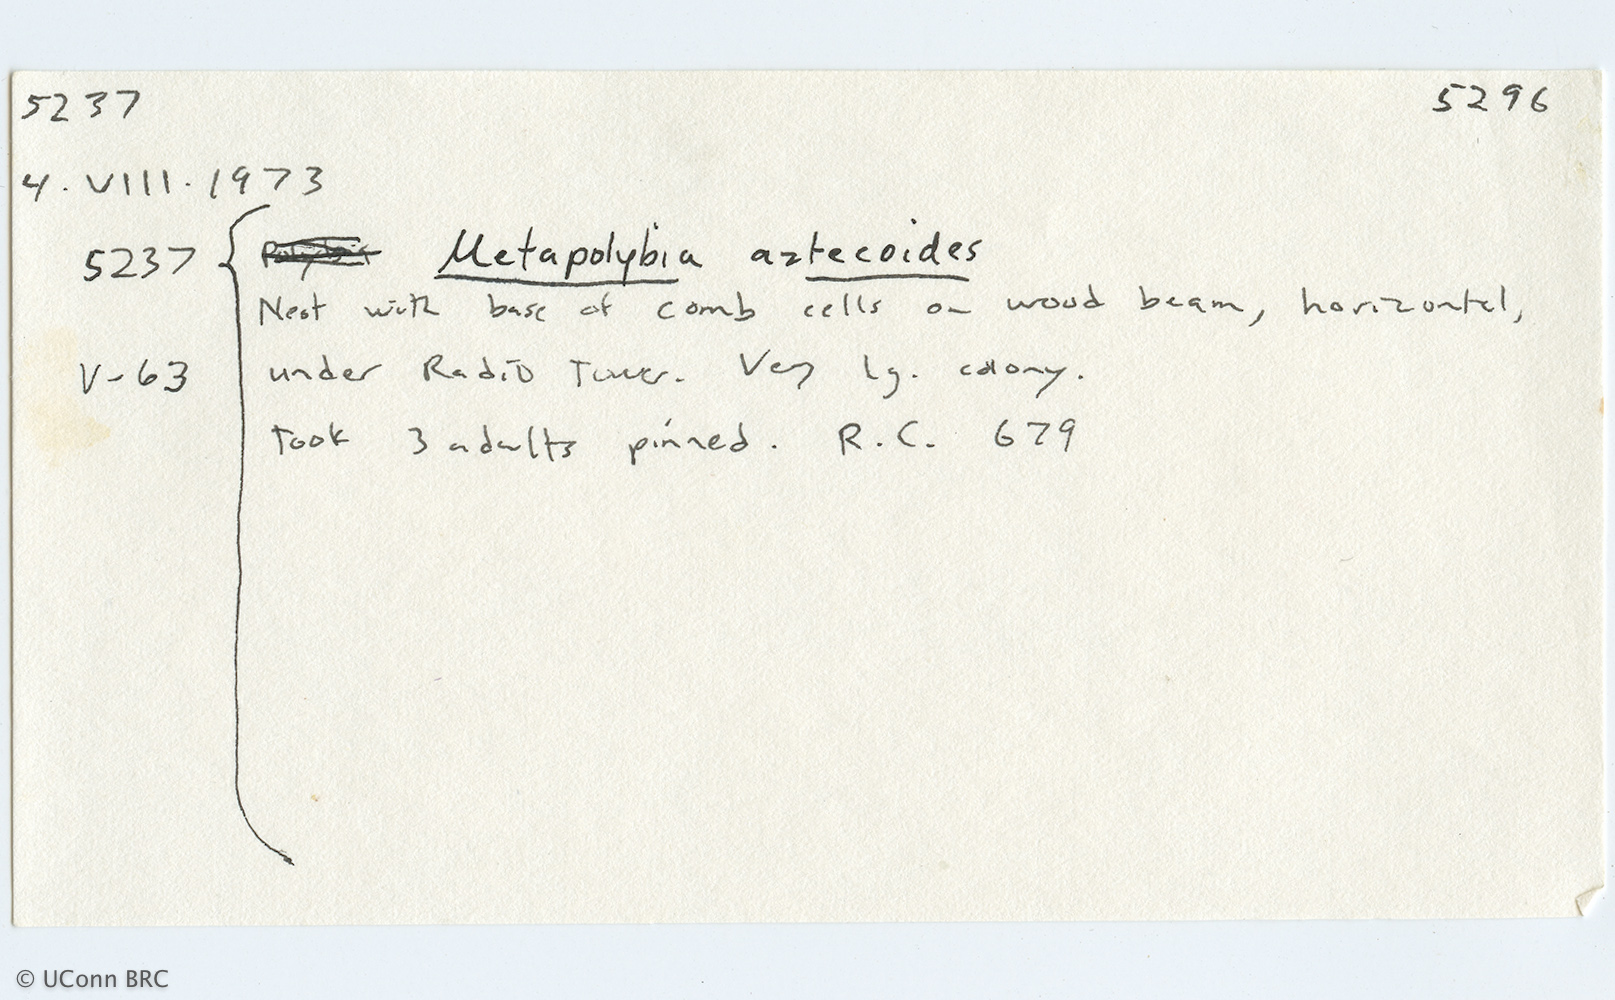 5237 5296
4. VIII. 1973
5237 Metapolybia aztecoides
Nest with base of comb cells on wood beam, horizontal,
V-63 under Radio Tower. Very Lg. colony.
Took 3 adults pinned. R.C. 679
© UConn BRC